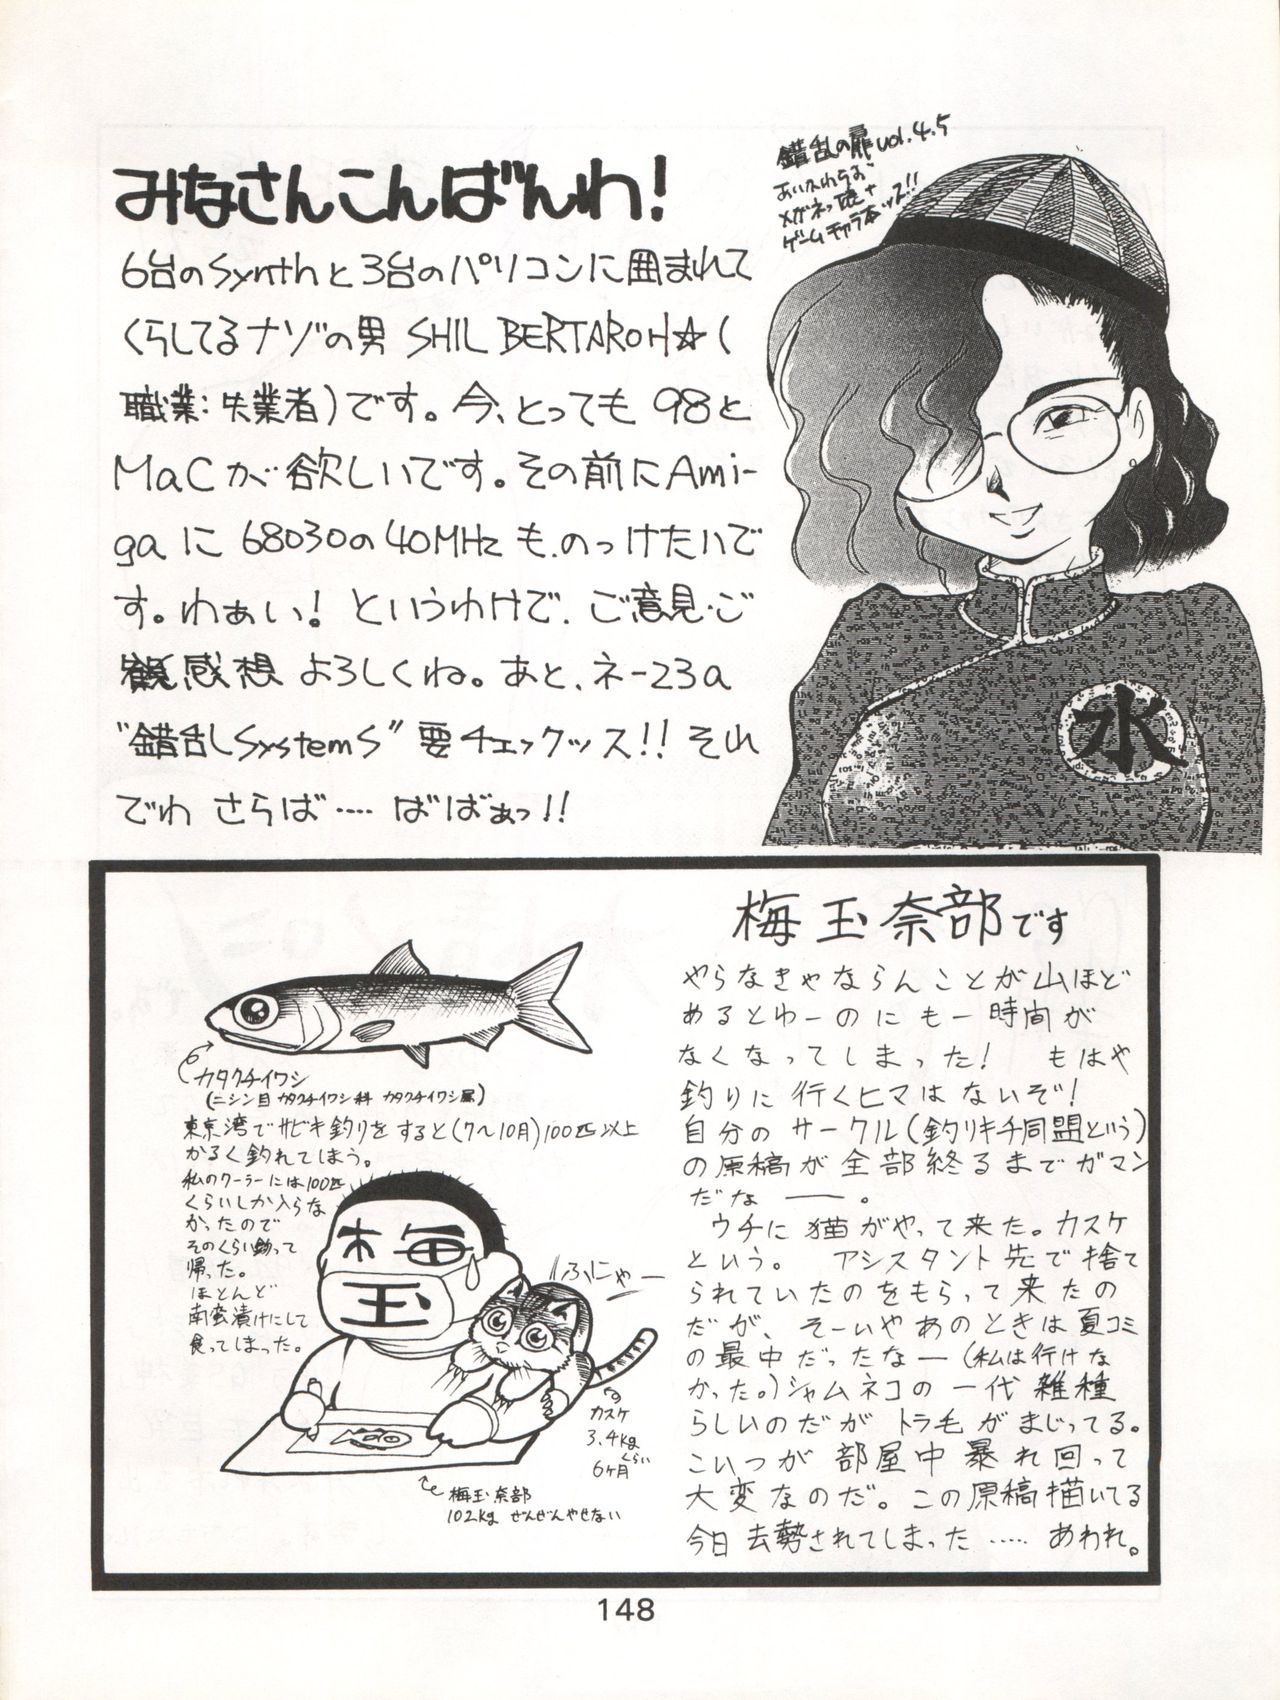 みなさんこんばんわ!
6台のSynthと3台のパソコンに囲まれて
くらしてるナゾの男 SHIL BERTAROH☆(
職業:失業者)です。今、とっても 98と
MaCが欲しいです。その前にAmi-
gaに 68030の40MHzも、のっけたいで
す。わぁい! というわけで、ご意見・ご
観感想 よろしくね。あと、ネー23a
"錯乱SystemS"要チェックッス!! それ
でわ さらば…‥ ばばぁっ!!
錯乱の扉vol.4.5
メガネっ娘+
ゲームキャラ本ッス!!
水
梅玉奈部です
やらなきゃならんことが山ほど
あるとゆーのにも一時間が
なくなってしまった! もはや
釣りに行くヒマはないぞ!
自分のサークル(釣りキチ同盟という)
の原稿が全部終るまでガマン
だな ――。
ウチに猫がやって来た。カスケ
という。 アシスタント先で捨て
られていたのをもらって来たの
だが、そーいやあのときは夏コミ
の最中だったなー(私は行けな
かった。)シャムネコの一代雑種
らしいのだがトラ毛がまじってる。
こいつが部屋中暴れ回って
大変なのだ。この原稿描いてる
今日去勢されてしまった ‥‥‥ あわれ。
カタクチイワシ
(ニシン目 カタクチイワシ科 カタクチイワシ属)
東京湾でサビキ釣りをすると(7〜10月)100匹以上
かるく釣れてしまう。
私のクーラーには100匹
くらいしか入らな
かったので
そのくらい釣って
帰った。
ほとんど
南蛮漬けにして
食ってしまった。
梅
玉
ふにゃー
カスケ
3.4kg
くらい
6ケ月
梅玉奈部
102kg ぜんぜんやせない
148